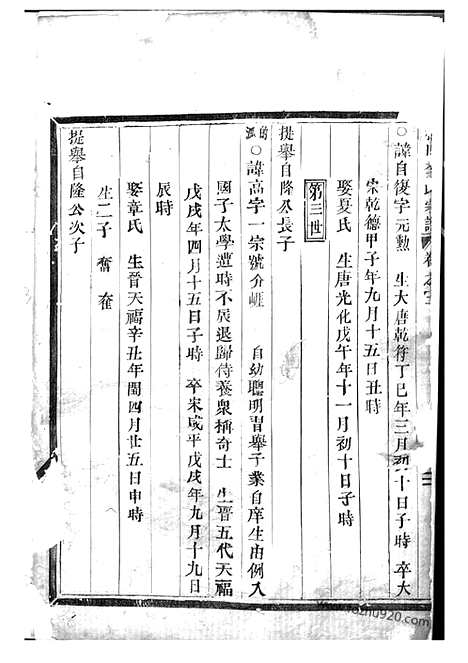 ○諱自復字元勲 生大唐乾符丁巳年三月初十日子時 卒大
宋乾德甲子年九月十五日丑時
娶夏氏 生唐光化戊午年十一月初十日子時
第三世
提舉自隆公長子
○諱高字一宗號分崕 自幼聰明習舉子業自庠生由例入
國子太學遭時不辰退歸侍養衆稱奇士 生晉五代天福
戊戌年四月十五日子時 卒宋咸平戊戌年九月十九日
辰時
娶章氏 生晉天福辛丑年閏四月廿五日申時
生二子 奮 奞
提舉自隆公次子
www.fozhu920.com